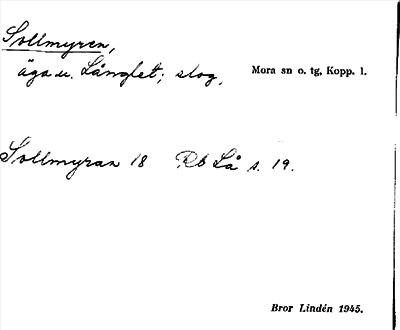 Sollmyren,
äga u. Långlet; slog.
Mora sn o. tg, Kopp. l.
Sollmyran 18 Rb Lå s. 19.
Bror Lindén 1945.